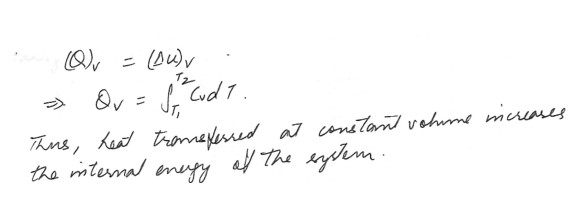 (Q)v = (Δu)v
⇒ Qv = ∫T1^T2 Cvd T.
Thus, heat transferred at constant volume increases
the internal energy of the system.